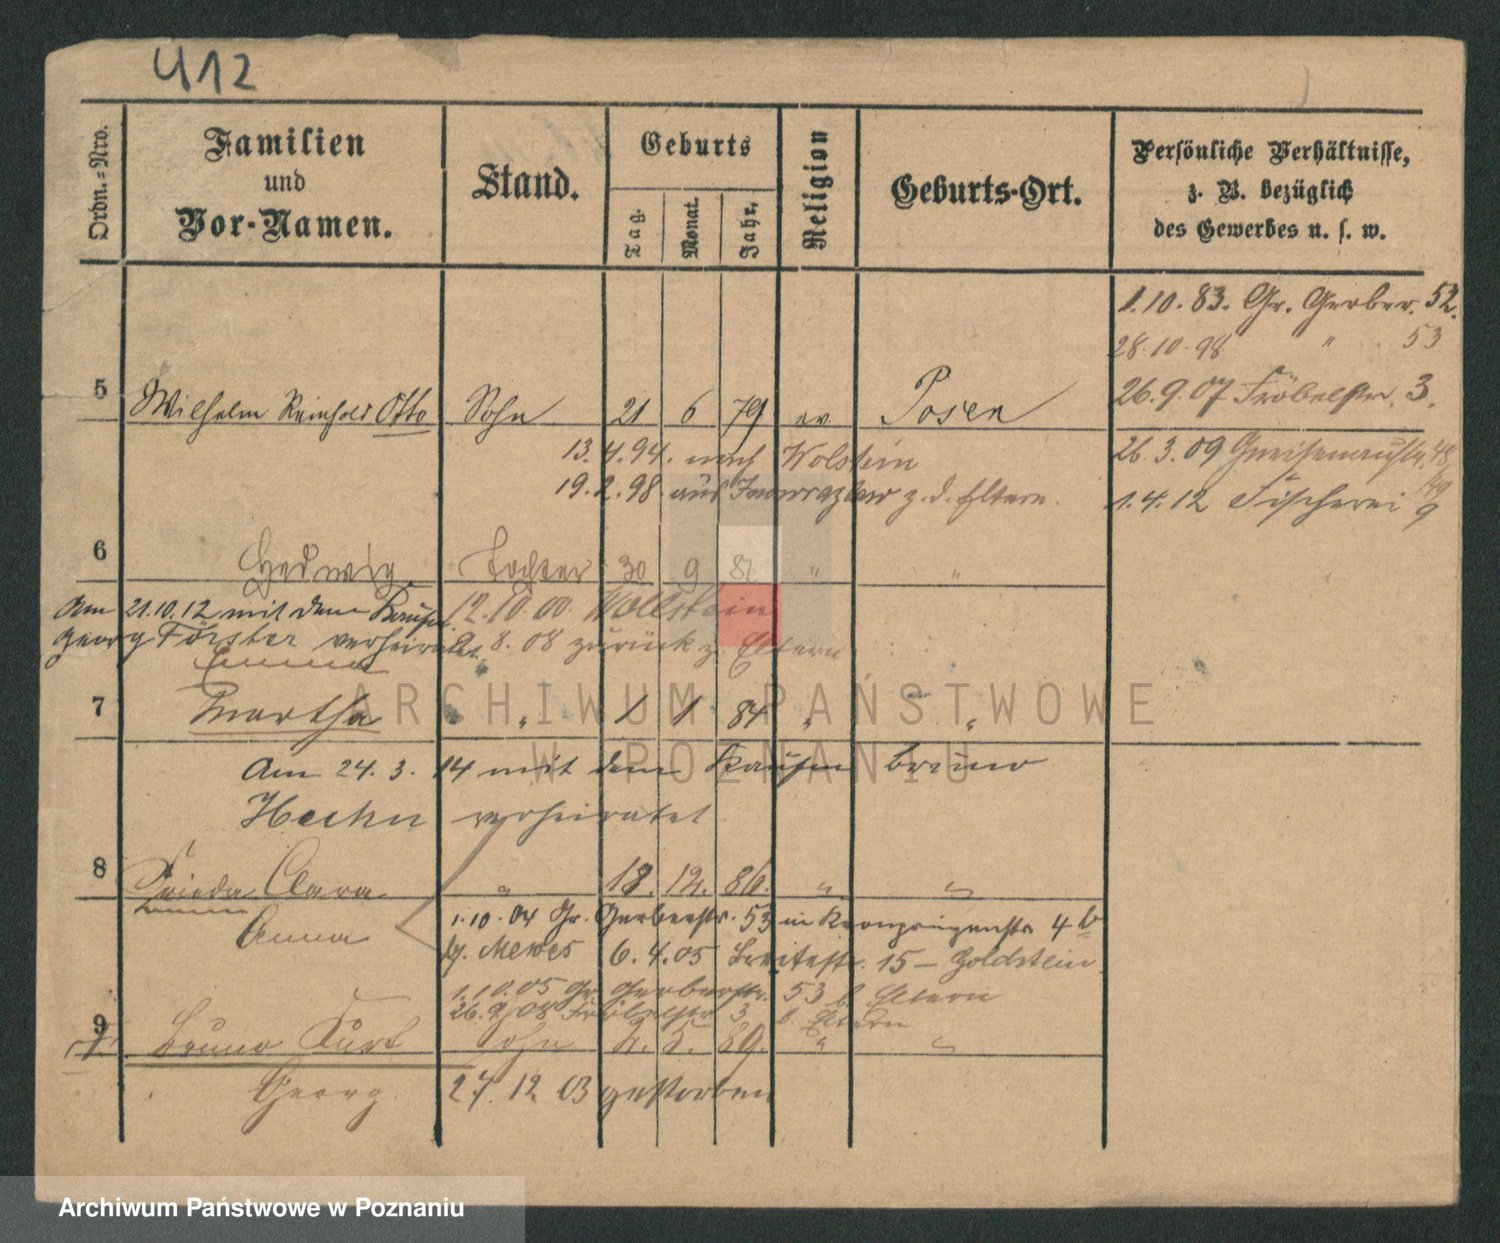 412
Ordn.-Nro.
Familien
und
Vor-Namen.
Stand.
Geburts
Tag.
Monat.
Jahr.
Religion
Geburts-Ort.
Persönliche Verhältnisse,
z. B. bezüglich
des Gewerbes u. s. w.
1.10.83. Gr. Gerber. 52.
28.10.98 " 53
26.9.07 Fröbelstr. 3.
5 Wilhelm Reinhold Otto Sohn 21 6 79 ev. Posen
26.3.09 Gneisenaustr. 48/49
13.4.94. nach Wolstein
19.2.98. aus Inowrazlaw z. d. Eltern.
1.4.12 Fischerei 9
6 Hedwig Tochter 30 9 81 " "
Am 21.10.12 mit dem Kaufm. 12.10.00. Wollstein
Georg Förster verheiratet. 8.08 zurück z. Eltern
Emma
7 Martha " 1 1 84 " "
Am 24.3.14 mit dem Kaufm Bruno
Hechn verheiratet
8 Frieda Clara " 18. 12. 86. " "
Anna
1.10.04 Gr. Gerberstr. 53 in Kronprinzenstr. 4b
b. Mewes 6.4.05 Breitestr. 15 – Goldstein
1.10.05 Gr. Gerberstr. 53 b. Eltern
26.9.08 Fröbelstr. 3 b. Eltern
9 Bruno Kurt Sohn 2. 5. 89. " "
Georg 27.12.03 gestorben
ARCHIWUM PAŃSTWOWE
W POZNANIU
Archiwum Państwowe w Poznaniu